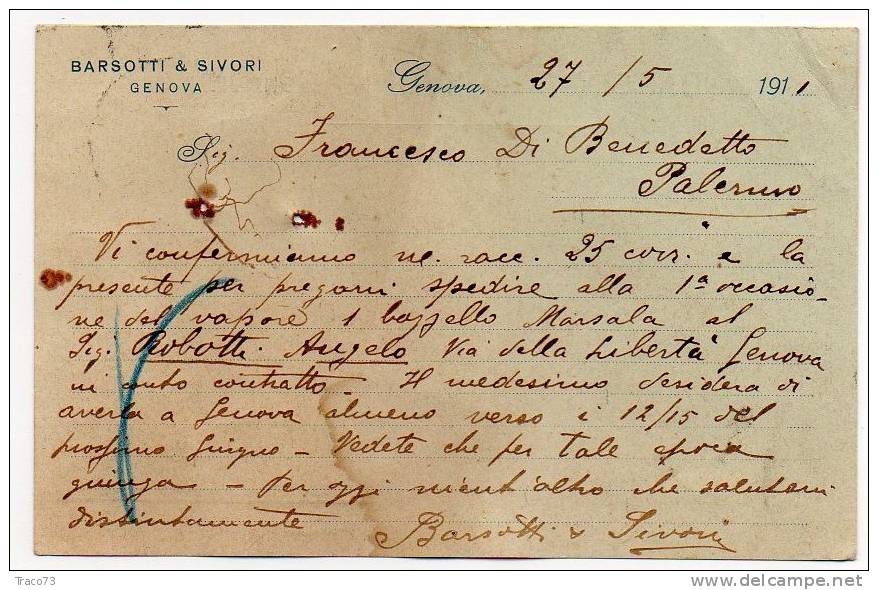 BARSOTTI & SIVORI
GENOVA
Genova, 27/5 1911
Sig. Francesco Di Benedetto
Palermo
Vi confermiamo ns. racc. 25 corr. e la
presente per pregarvi spedire alla 1ª occasio-
ne del vapore 1 bozzello Marsala al
Sig. Robotti Angelo Via della Libertà Genova
in conto contratto - Il medesimo desidera di
averla a Genova almeno verso i 12/15 del
prossimo Giugno - Vedete che per tale epoca
giunga - Per oggi nient'altro che salutarvi
distintamente Barsotti & Sivori
Traco73
delcampe.net